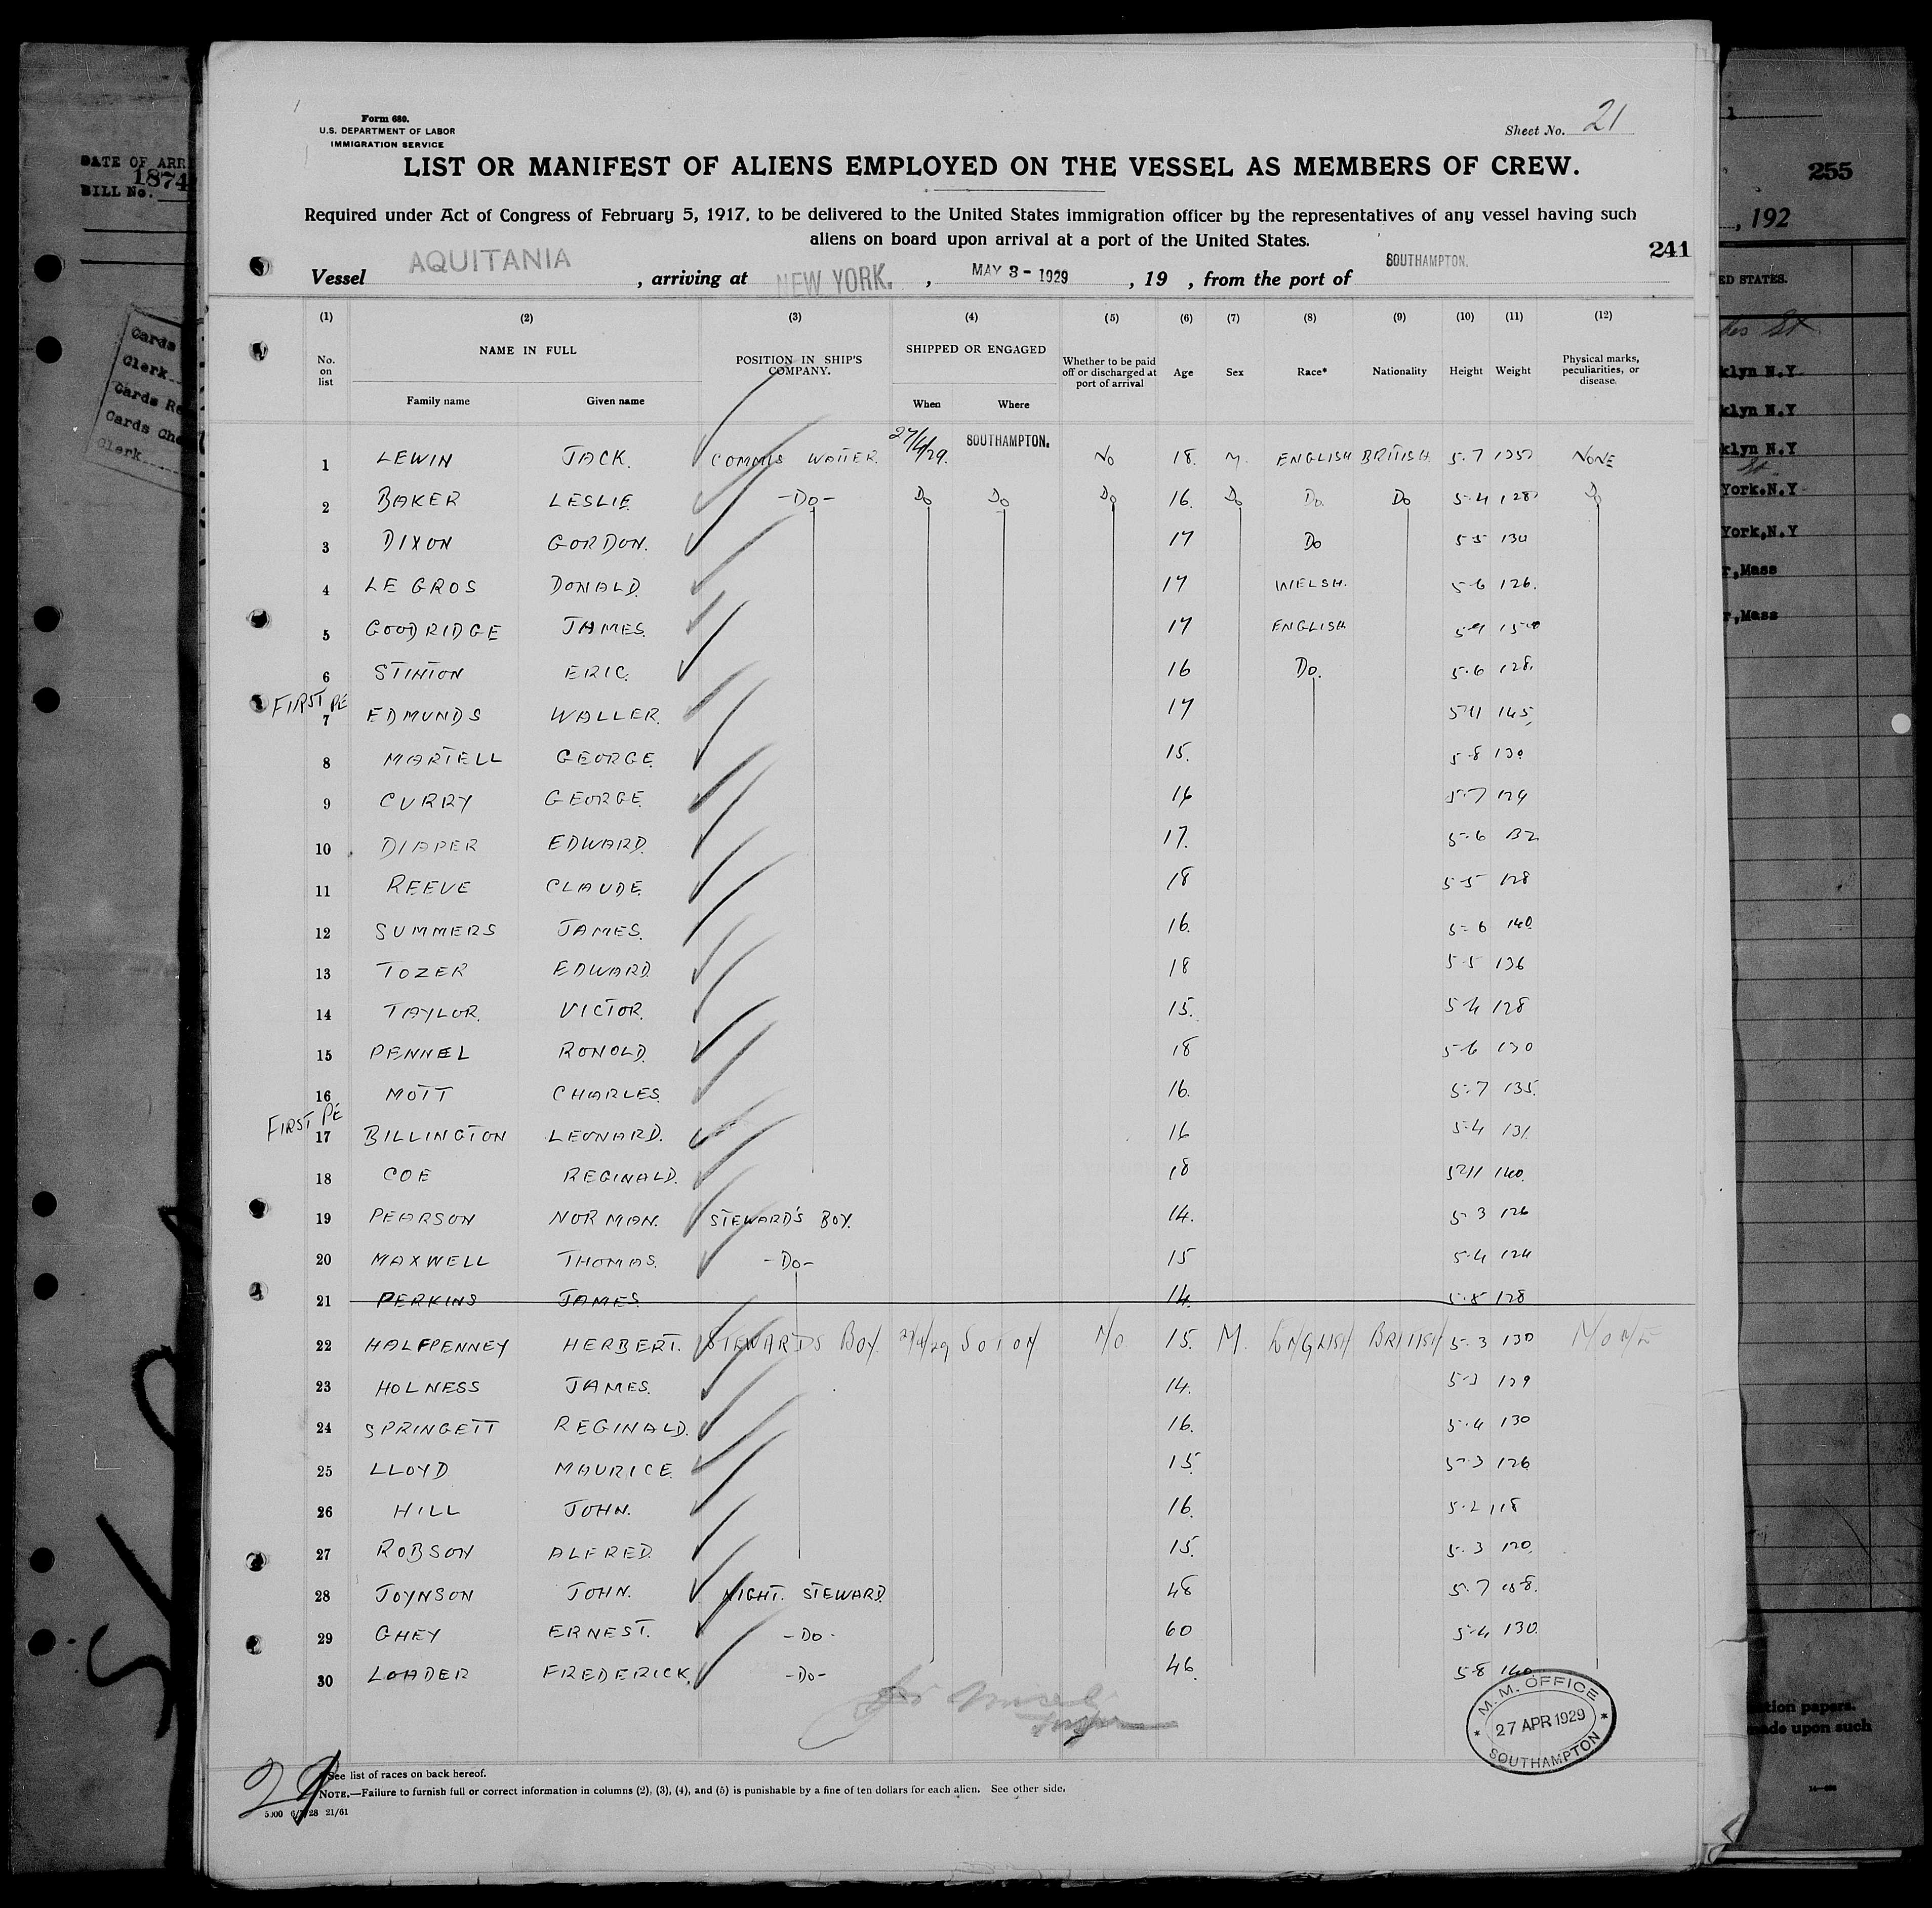 Form 680.
U.S. DEPARTMENT OF LABOR
IMMIGRATION SERVICE
Sheet No. 21
LIST OR MANIFEST OF ALIENS EMPLOYED ON THE VESSEL AS MEMBERS OF CREW.
Required under Act of Congress of February 5, 1917, to be delivered to the United States immigration officer by the representatives of any vessel having such
aliens on board upon arrival at a port of the United States.
241
Vessel AQUITANIA, arriving at NEW YORK., MAY 3 - 1929, 19 , from the port of SOUTHAMPTON.
(1) (2) (3) (4) (5) (6) (7) (8) (9) (10) (11) (12)
No. on list NAME IN FULL POSITION IN SHIP'S COMPANY. SHIPPED OR ENGAGED Whether to be paid off or discharged at port of arrival Age Sex Race* Nationality Height Weight Physical marks, peculiarities, or disease.
Family name Given name When Where
1 LEWIN JACK. COMMIS WAITER. 27/4/29. SOUTHAMPTON. NO 18. M. ENGLISH BRITISH. 5-7 NONE
2 BAKER LESLIE. -DO- DO DO DO 16. DO DO. DO 5-4 128 DO
3 DIXON GORDON. 17 DO 5-5 130
4 LE GROS DONALD. 17 WELSH. 5-6 126.
5 GOODRIDGE JAMES. 17 ENGLISH
6 STINTON ERIC. 16 DO. 5-6 128.
FIRST PE
7 EDMUNDS WALLER. 17 5-11 145
8 MARTELL GEORGE. 15. 5-8 130
9 CURRY GEORGE. 16 5-7 129
10 DIAPER EDWARD. 17. 5-6 132
11 REEVE CLAUDE. 18 5-5 128
12 SUMMERS JAMES. 16. 5-6 140.
13 TOZER EDWARD. 18 5-5 136
14 TAYLOR. VICTOR. 15. 5-4 128
15 PENNEL RONOLD. 18 5-6 130
16 MOTT CHARLES. 16. 5-7 135.
FIRST PE
17 BILLINGTON LEONARD. 16 5-4 131.
18 COE REGINALD. 18 5-11 140.
19 PEARSON NORMAN. STEWARD'S BOY. 14. 5-3 126
20 MAXWELL THOMAS. -DO- 15 5-4 124
21 PERKINS JAMES. 14. 5-5 128
22 HALFPENNEY HERBERT. STEWARDS BOY 27/4/29 SOTON NO 15. M. ENGLISH BRITISH 5-3 130 NONE
23 HOLNESS JAMES. 14. 5-3 129
24 SPRINGETT REGINALD. 16. 5-4 130
25 LLOYD MAURICE. 15. 5-3 126
26 HILL JOHN. 16. 5-2 118
27 ROBSON ALFRED. 15. 5-3 120.
28 JOYNSON JOHN. NIGHT. STEWARD. 48 5-7
29 GHEY ERNEST. -DO- 60 5-4 130.
30 LOADER FREDERICK. -DO- 46. 5-8 140
M. M. OFFICE
27 APR 1929
SOUTHAMPTON
29
*See list of races on back hereof.
NOTE.—Failure to furnish full or correct information in columns (2), (3), (4), and (5) is punishable by a fine of ten dollars for each alien. See other side.
21/61
DATE OF ARR
1874
BILL No.
Cards
Clerk
Cards Re
Cards Che
Clerk
255
, 192
ED STATES.
klyn N.Y
klyn N.Y
klyn N.Y
York.N.Y
York,N.Y
r,Mass
r,Mass
tion papers.
made upon such